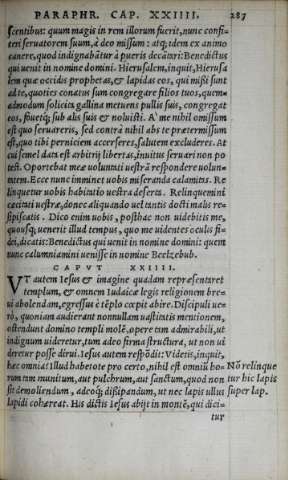 PARAPHR. CAP. XXIIII. 287
scentibus: quum magis in rem illorum fuerit, nunc confi-
teri seruatorem suum, à deo missum: atq; idem ex animo
canere, quod indignabātur à pueris decātari: Benedictus
qui uenit in nomine domini. Hierusalem, inquit, Hierusa
lem quæ occidis prophetas, & lapidas eos, qui missi sunt
ad te, quoties conatus sum congregare filios tuos, quem-
admodum solicita gallina metuens pullis suis, congregat
eos, fouetq; sub alis suis & noluisti. A' me nihil omissum
est quo seruareris, sed contrà nihil abs te prætermissum
est, quo tibi perniciem accerseres, salutem excluderes. At
cui semel data est arbitrij libertas, inuitus seruari non po
test. Oportebat meæ uoluntati uestrā respondere uolun-
tatem. Ecce nunc imminet uobis miseranda calamitas. Re
linquetur uobis habitatio uestra deserta. Relinquemini
cæcitati uestræ, donec aliquando uel tantis docti malis re-
sipiscatis. Dico enim uobis, posthac non uidebitis me,
quousq; uenerit illud tempus, quo me uidentes oculis fi-
dei, dicatis: Benedictus qui uenit in nomine domini: quem
nunc calumniamini uenisse in nomine Beelzebub.
CAPVT XXIIII.
VT autem Iesus & imagine quadam repræsentaret
templum, & omnem Iudaicæ legis religionem bre-
ui abolendam, egressus è tēplo cœpit abire. Discipuli ue-
rò, quoniam audierant nonnullam uastitatis mentionem,
ostendunt domino templi molē, opere tam admirabili, ut
indignum uideretur, tum adeo firma structura, ut non ui
deretur posse dirui. Iesus autem respōdit: Videtis, inquit,
hæc omnia? Illud habetote pro certo, nihil est omniū ho-
rum tam munitum, aut pulchrum, aut sanctum, quod non
sit demoliendum, adeoq; dissipandum, ut nec lapis ullus
lapidi cohæreat. His dictis Iesus abijt in montē, qui dici-
tur
Nō relinque
tur hic lapis
super lap.